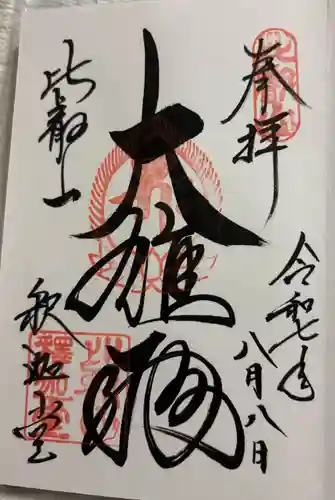 奉拝
令和七年
八月八日
大雄殿
比叡山
釈迦堂